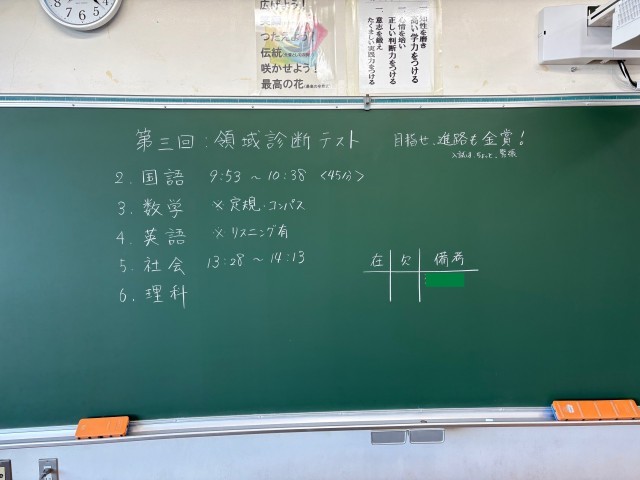 広げよう！
つたえよう！
伝統
咲かせよう！
最高の花
一、知性を磨き
高い学力をつける
一、心情を培い
正しい判断力をつける
一、意志を鍛え
たくましい実践力をつける
第三回：領域診断テスト
目指せ、進路も金賞！
2. 国語 9:53 〜 10:38 〈45分〉
3. 数学 × 定規・コンパス
4. 英語 × リスニング有
5. 社会 13:28 〜 14:13
6. 理科
在 欠 備考